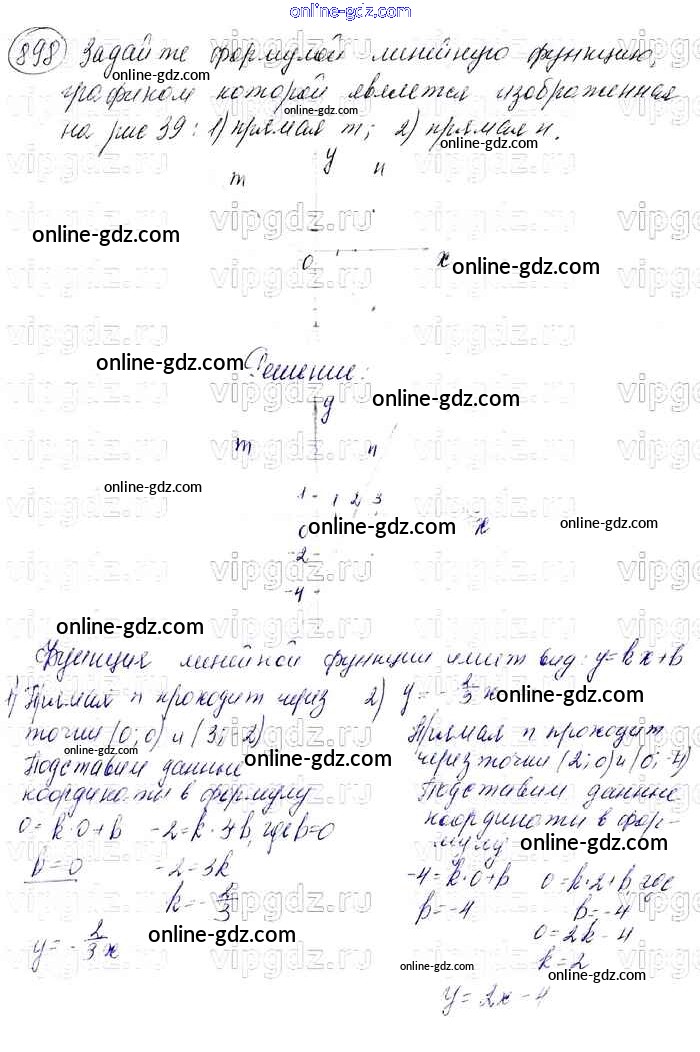 online-gdz.com
898 Задайте формулой линейную функцию,
online-gdz.com
графиком которой является изображенная
online-gdz.com
на рис 39: 1) прямая m; 2) прямая n.
online-gdz.com
vipgdz.ru vipgdz.ru vipgdz.ru
y
m n
online-gdz.com
0 x online-gdz.com
online-gdz.com
Решение:
online-gdz.com
y
m n
online-gdz.com online-gdz.com
1 1 2 3
0 online-gdz.com x online-gdz.com
-2
-4
online-gdz.com
Функция линейной функции имеет вид: y=kx+b
1) Прямая n проходит через 2) y = - 2/3 x online-gdz.com
точки (0; 0) и (3; -2) Прямая n проходит
online-gdz.com online-gdz.com через точки (2; 0) и (0; -4)
Подставим данные Подставим данные
координаты в формулу координаты в фор-
мулу online-gdz.com
0 = k·0+b -2=k·3+b, где b=0
b=0 -2=3k -4=k·0+b 0=k·2+b, где
k=-2/3 b=-4 b=-4
y=-2/3x online-gdz.com 0=2k-4
k=2
online-gdz.com online-gdz.com
y=2x-4